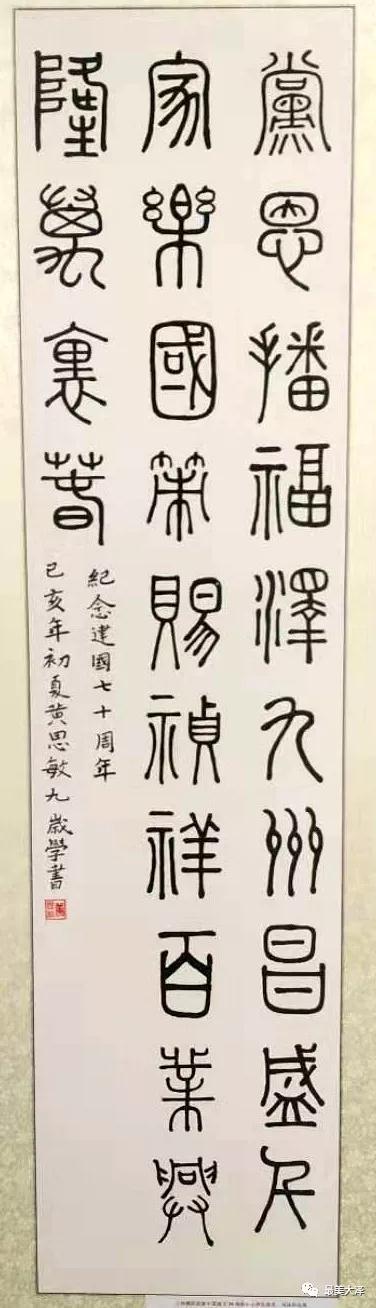 黨恩播福澤九州昌盛民
家樂國策賜禎祥百業興
隆萬裏春
紀念建國七十周年
己亥年初夏黄思敏九歲學書
最美大泽